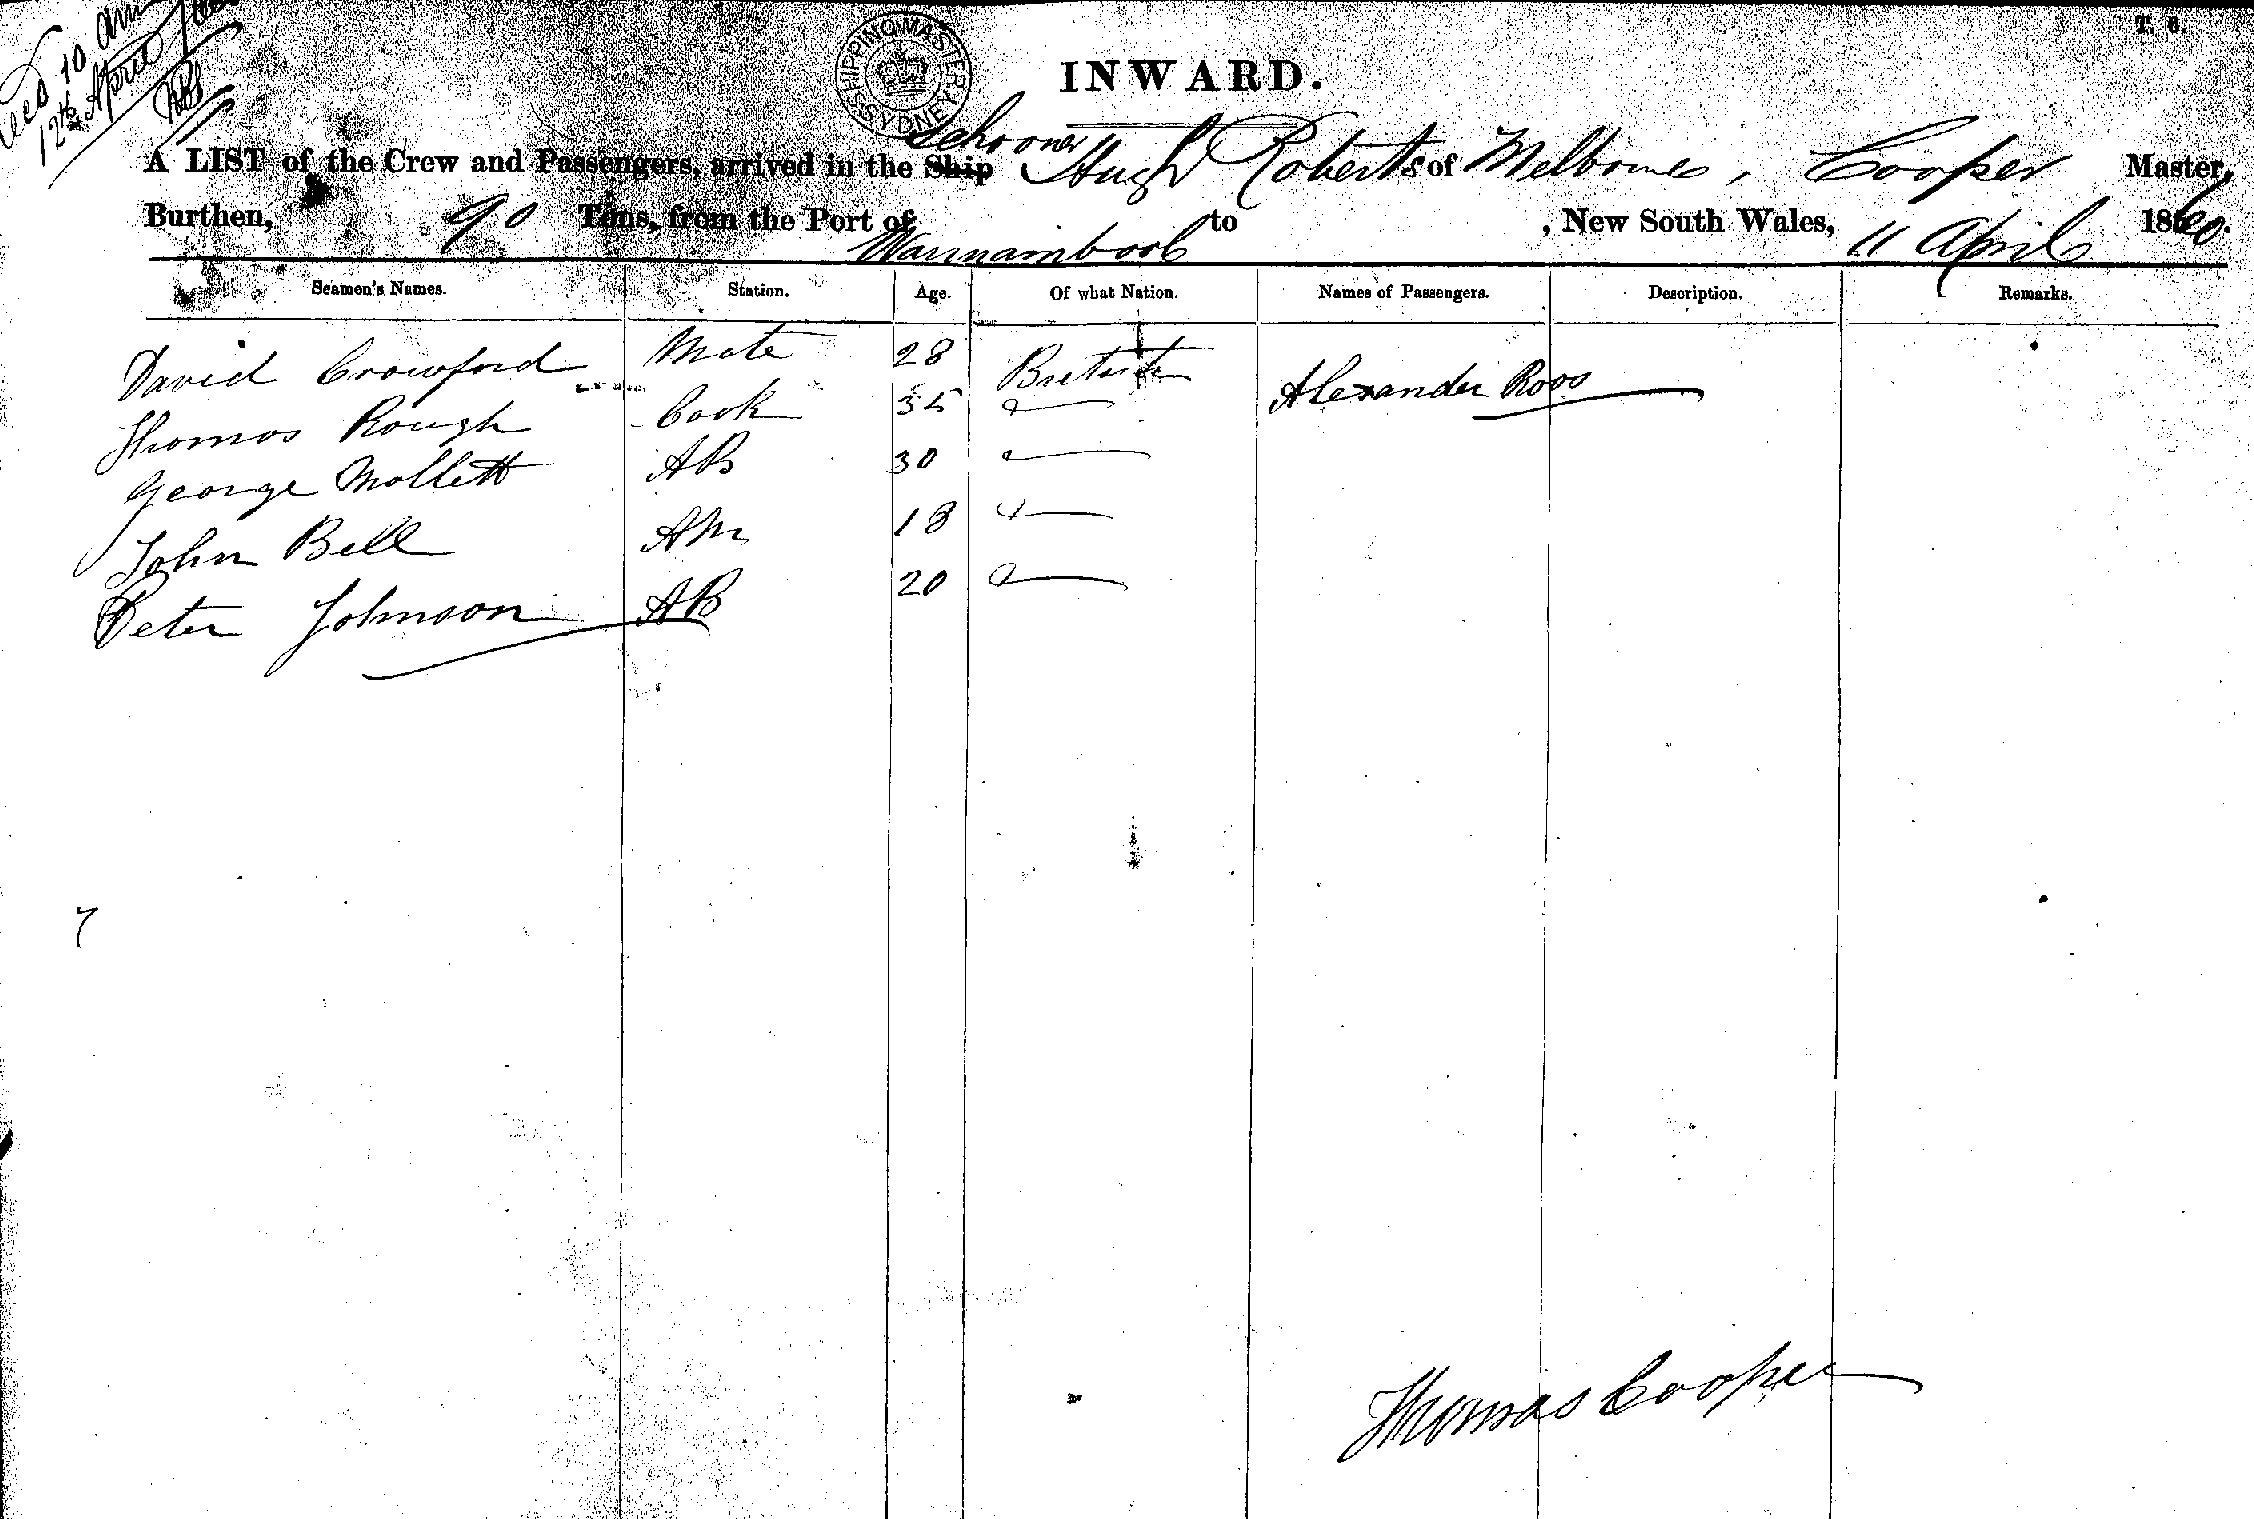 10 am
12th April
SHIPPING MASTER
SYDNEY
T. 6.
INWARD.
schooner
A LIST of the Crew and Passengers, arrived in the Ship Hugh Roberts of Melbourne, Cooper Master,
Burthen, 90 Tons, from the Port of Warrnambool to , New South Wales, 11 April 1860.
Seamen's Names. Station. Age. Of what Nation. Names of Passengers. Description. Remarks.
David Crowford Mate 28 British Alexander Roos
Thomas Rough Cook 35
George Mollett AB 30
John Bell 18
Peter Johnson AB 20
Thomas Cooper